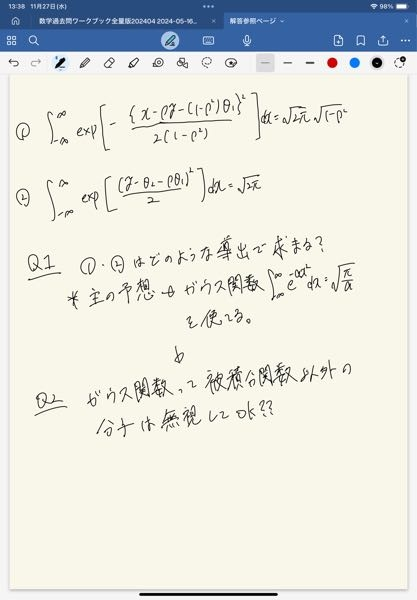 13:38 11月27日(水)
98%
数学過去問ワークブック全量版202404 2024-05-16...
解答参照ページ
① ∫_{-∞}^{∞} exp[-{x-ρy-(1-ρ²)θ₁}²/2(1-ρ²)]dx=√2π √1-ρ²
② ∫_{-∞}^{∞} exp[(y-θ₂-ρθ₁)²/2]dx=√2π
Q1 ①・②はどのような導出で求まる?
*主の予想 → ガウス関数 ∫_{-∞}^{∞} e^{-ax²}dx=√π/a
を使てる。
Q2 ガウス関数って被積分関数以外の
分子は無視してOK??